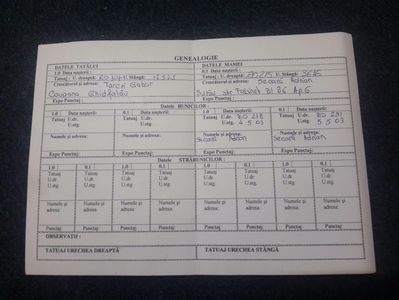 GENEALOGIE
DATELE TATĂLUI DATELE MAMEI
1.0 Data nașterii: 0.1 Data nașterii:
Tatuaj : U. dreaptă: U. Stângă: Tatuaj : U. dreaptă: U. Stângă:
Crescătorul și adresa: Tarcsi Gabor Crescătorul și adresa: Secară Adrian
Covasna Ghidfalău
Expo Punctaj: Expo Punctaj:
Datele BUNICILOR :
1.0 Data nașterii: 0.1 Data nașterii: 1.0 Data nașterii: 0.1 Data nașterii:
Tatuaj U.dr. Tatuaj U.dr. Tatuaj U.dr. RO 218 Tatuaj U.dr. RO 231
U.stg. U.stg. U.stg. 4 5 03 U.stg. 5 5 03
Numele și adresa: Numele și adresa: Numele și adresa: Numele și adresa:
Secară Adrian Secară Adrian
Expo Punctaj: Expo Punctaj: Expo Punctaj: Expo Punctaj:
Datele STRĂBUNICILOR :
1.0 0.1 1.0 0.1 1.0 0.1 1.0 0.1
Tatuaj Tatuaj Tatuaj Tatuaj Tatuaj Tatuaj Tatuaj Tatuaj
U.dr. U.dr. U.dr. U.dr. U.dr. U.dr. U.dr. U.dr.
U.stg. U.stg. U.stg. U.stg. U.stg. U.stg. U.stg. U.stg.
Numele și Numele și Numele și Numele și Numele și Numele și Numele și Numele și
adresa: adresa: adresa: adresa: adresa: adresa: adresa: adresa:
Punctaj Punctaj Punctaj Punctaj Punctaj Punctaj Punctaj Punctaj
OBSERVAȚII :
TATUAJ URECHEA DREAPTĂ TATUAJ URECHEA STÂNGĂ